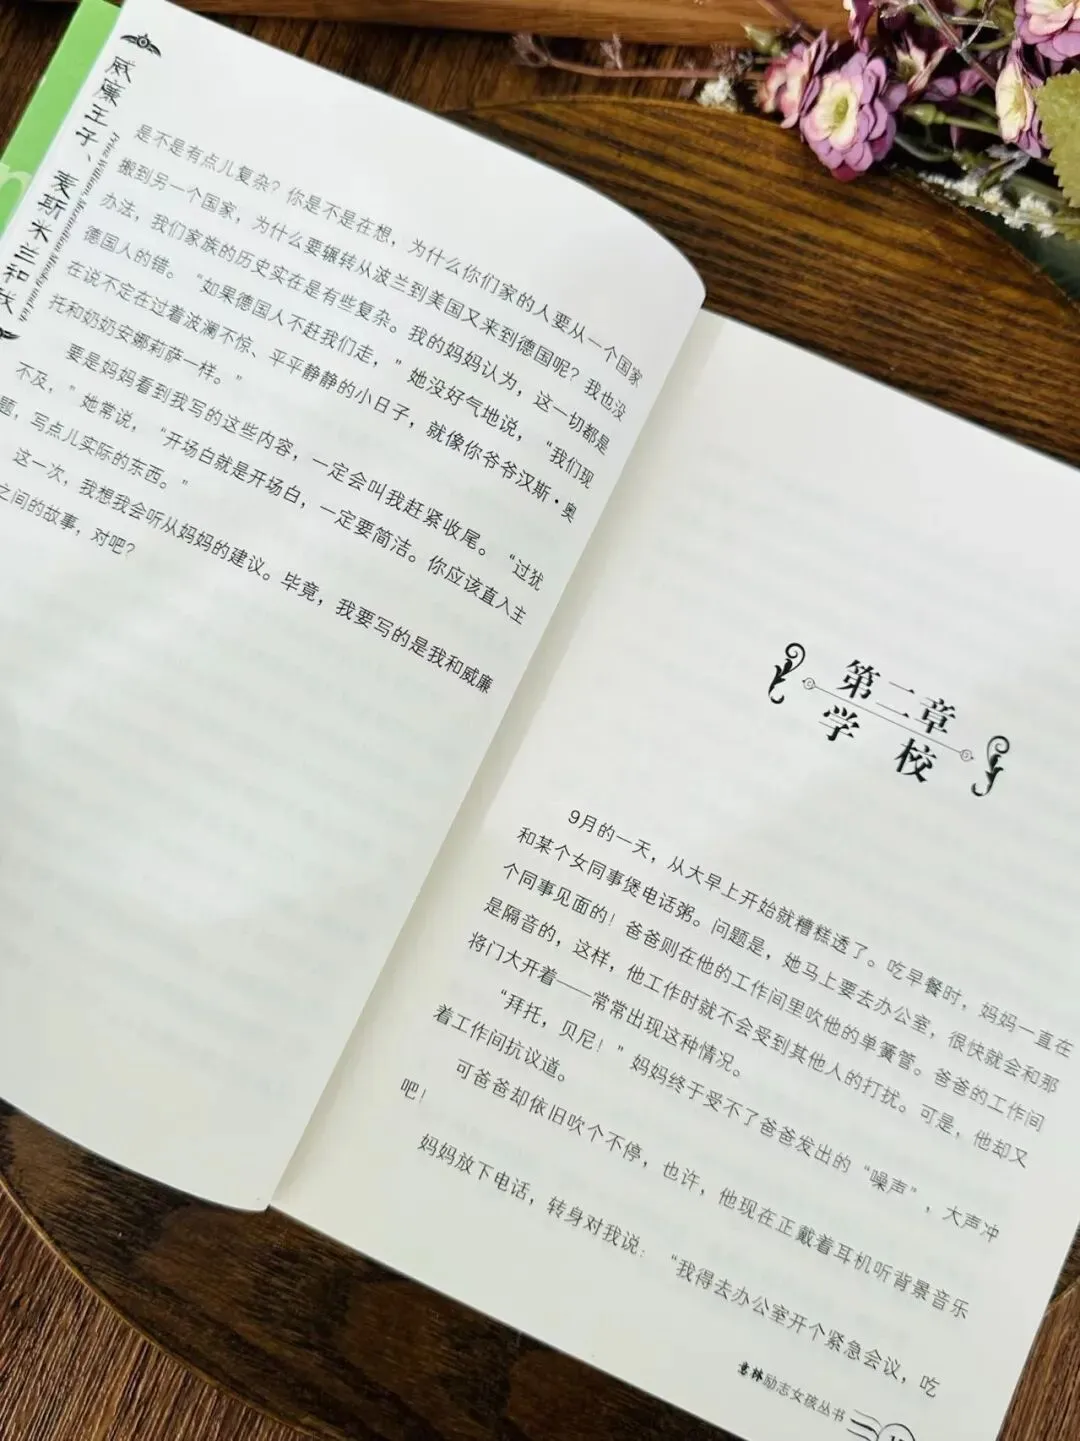 威廉王子、麦斯米兰和我
是不是有点儿复杂？你是不是在想，为什么你们家的人要从一个国家
搬到另一个国家，为什么要辗转从波兰到美国又来到德国呢？我也没
办法，我们家族的历史实在是有些复杂。我的妈妈认为，这一切都是
德国人的错。“如果德国人不赶我们走，”她没好气地说，“我们现
在说不定在过着波澜不惊、平平静静的小日子，就像你爷爷汉斯·奥
托和奶奶安娜莉萨一样。”
要是妈妈看到我写的这些内容，一定会叫我赶紧收尾。“过犹
不及，”她常说，“开场白就是开场白，一定要简洁。你应该直入主
题，写点儿实际的东西。”
这一次，我想我会听从妈妈的建议。毕竟，我要写的是我和威廉
之间的故事，对吧？
第二章
学 校
9月的一天，从大早上开始就糟糕透了。吃早餐时，妈妈一直在
和某个女同事煲电话粥。问题是，她马上要去办公室，很快就会和那
个同事见面的！爸爸则在他的工作间里吹他的单簧管。爸爸的工作间
是隔音的，这样，他工作时就不会受到其他人的打扰。可是，他却又
将门大开着——常常出现这种情况。
“拜托，贝尼！”妈妈终于受不了爸爸发出的“噪声”，大声冲
着工作间抗议道。
可爸爸却依旧吹个不停，也许，他现在正戴着耳机听背景音乐
吧！
妈妈放下电话，转身对我说：“我得去办公室开个紧急会议，吃
意林励志女孩丛书